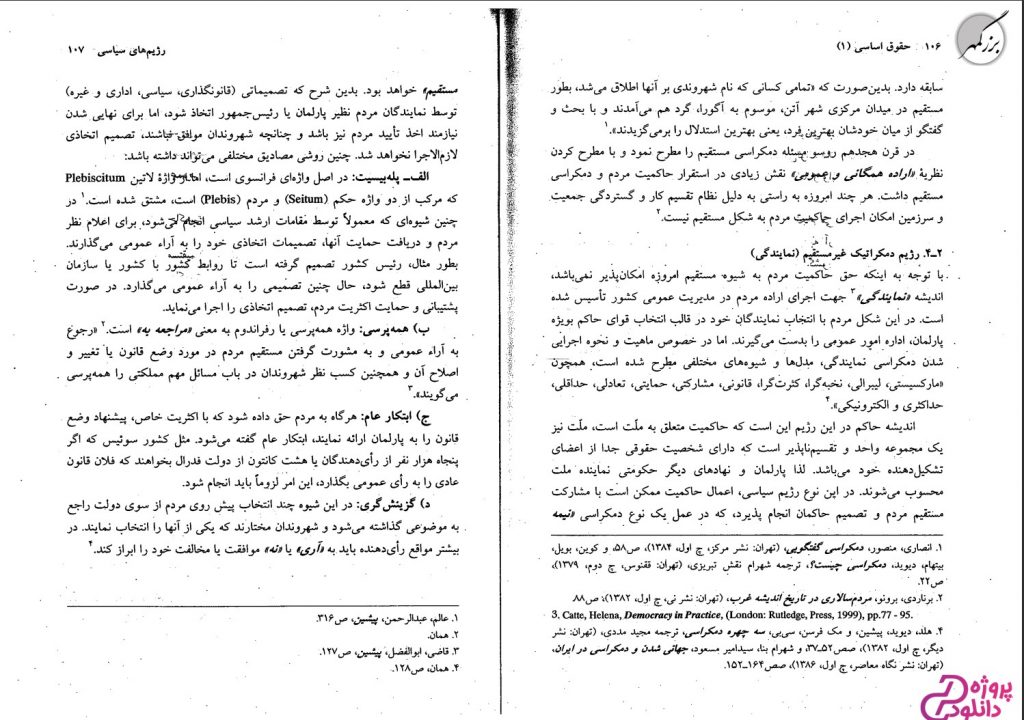 ۱۰۶ حقوق اساسی (۱)
بزرگمهر
سابقه دارد. بدین‌صورت که «تمامی کسانی که نام شهروندی بر آنها اطلاق می‌شد، بطور
مستقیم در میدان مرکزی شهر آتن، موسوم به آگورا، گرد هم می‌آمدند و با بحث و
گفتگو از میان خودشان بهترین فرد، یعنی بهترین استدلال را برمی‌گزیدند».۱
در قرن هجدهم روسو مسئله دمکراسی مستقیم را مطرح نمود و با مطرح کردن
نظریهٔ «اراده همگانی و عمومی» نقش زیادی در استقرار حاکمیت مردم و دمکراسی
مستقیم داشت. هر چند امروزه به راستی به دلیل نظام تقسیم کار و گستردگی جمعیت
و سرزمین امکان اجرای حاکمیت مردم به شکل مستقیم نیست.۲
۲ـ۴. رژیم دمکراتیک غیرمستقیم (نمایندگی)
با توجه به اینکه حق حاکمیت مردم به شیوه مستقیم امروزه امکان‌پذیر نمی‌باشد،
اندیشه «نمایندگی»۳ جهت اجرای اراده مردم در مدیریت عمومی کشور تأسیس شده
است. در این شکل مردم با انتخاب نمایندگان خود در قالب انتخاب قوای حاکم بویژه
پارلمان، اداره امور عمومی را بدست می‌گیرند. اما در خصوص ماهیت و نحوه اجرایی
شدن دمکراسی نمایندگی، مدل‌ها و شیوه‌های مختلفی مطرح شده است، همچون
«مارکسیستی، لیبرالی، نخبه‌گرا، کثرت‌گرا، قانونی، مشارکتی، حمایتی، تعادلی، حداقلی،
حداکثری و الکترونیکی».۴
اندیشه حاکم در این رژیم این است که حاکمیت متعلق به ملّت است، ملّت نیز
یک مجموعه واحد و تقسیم‌ناپذیر است که دارای شخصیت حقوقی جدا از اعضای
تشکیل‌دهنده خود می‌باشد. لذا پارلمان و نهادهای دیگر حکومتی نماینده ملت
محسوب می‌شوند. در این نوع رژیم سیاسی، اعمال حاکمیت ممکن است با مشارکت
مستقیم مردم و تصمیم حاکمان انجام پذیرد، که در عمل یک نوع دمکراسی «نیمه
۱. انصاری، منصور، دمکراسی گفتگویی، (تهران: نشر مرکز، چ اول، ۱۳۸۴)، ص۵۸، و کوین، بویل،
بیتهام، دیوید، دمکراسی چیست؟، ترجمه شهرام نقش تبریزی، (تهران: ققنوس، چ دوم، ۱۳۷۹)،
ص۲۲.
۲. برناردی، برونو، مردم‌سالاری در تاریخ اندیشه غرب، (تهران: نشر نی، چ اول، ۱۳۸۲)، ص۸۸.
3. Catte, Helena, Democracy in Practice, (London: Rutledge, Press, 1999), pp.77 - 95.
۴. هلد، دیوید، پیشین، و مک فرسن، سی‌بی، سه چهره دمکراسی، ترجمه مجید مددی، (تهران: نشر
دیگر، چ اول، ۱۳۸۲)، صص۵۲ـ۳۷، و شهرام بنا، سیدامیر مسعود، جهانی شدن و دمکراسی در ایران،
(تهران: نشر نگاه معاصر، چ اول، ۱۳۸۶)، صص۱۶۴ـ۱۵۲.
رژیم‌های سیاسی ۱۰۷
مستقیم» خواهد بود. بدین شرح که تصمیماتی (قانونگذاری، سیاسی، اداری و غیره)
توسط نمایندگان مردم نظیر پارلمان یا رئیس‌جمهور اتخاذ شود، اما برای نهایی شدن
نیازمند اخذ تأیید مردم نیز باشد و چنانچه شهروندان موافق نباشند، تصمیم اتخاذی
لازم‌الاجرا نخواهد شد. چنین روشی مصادیق مختلفی می‌تواند داشته باشد:
الف‌ـ پله‌بیسیت: در اصل واژه‌ای فرانسوی است، اما از واژهٔ لاتین Plebiscitum
که مرکب از دو واژه حکم (Seitum) و مردم (Plebis) است، مشتق شده است.۱ در
چنین شیوه‌ای که معمولاً توسط مقامات ارشد سیاسی انجام می‌شود، برای اعلام نظر
مردم و دریافت حمایت آنها، تصمیمات اتخاذی خود را به آراء عمومی می‌گذارند.
بطور مثال، رئیس کشور تصمیم گرفته است تا روابط کشور با کشور یا سازمان
بین‌المللی قطع شود، حال چنین تصمیمی را به آراء عمومی می‌گذارد. در صورت
پشتیبانی و حمایت اکثریت مردم، تصمیم اتخاذی را اجرا می‌نماید.
ب) همه‌پرسی: واژه همه‌پرسی یا رفراندوم به معنی «مراجعه به» است.۲ «رجوع
به آراء عمومی و به مشورت گرفتن مستقیم مردم در مورد وضع قانون یا تغییر و
اصلاح آن و همچنین کسب نظر شهروندان در باب مسائل مهم مملکتی را همه‌پرسی
می‌گویند».۳
ج) ابتکار عام: هرگاه به مردم حق داده شود که با اکثریت خاص، پیشنهاد وضع
قانون را به پارلمان ارائه نمایند، ابتکار عام گفته می‌شود. مثل کشور سوئیس که اگر
پنجاه هزار نفر از رأی‌دهندگان یا هشت کانتون از دولت فدرال بخواهند که فلان قانون
عادی را به رأی عمومی بگذارد، این امر لزوماً باید انجام شود.
د) گزینش‌گری: در این شیوه چند انتخاب پیش روی مردم از سوی دولت راجع
به موضوعی گذاشته می‌شود و شهروندان مختارند که یکی از آنها را انتخاب نمایند. در
بیشتر مواقع رأی‌دهنده باید به «آری» یا «نه» موافقت یا مخالفت خود را ابراز کند.۴
۱. عالم، عبدالرحمن، پیشین، ص۳۱۶.
۲. همان.
۳. قاضی، ابوالفضل، پیشین، ص۱۲۷.
۴. همان، ص۱۲۸.
پروژه
دانلود